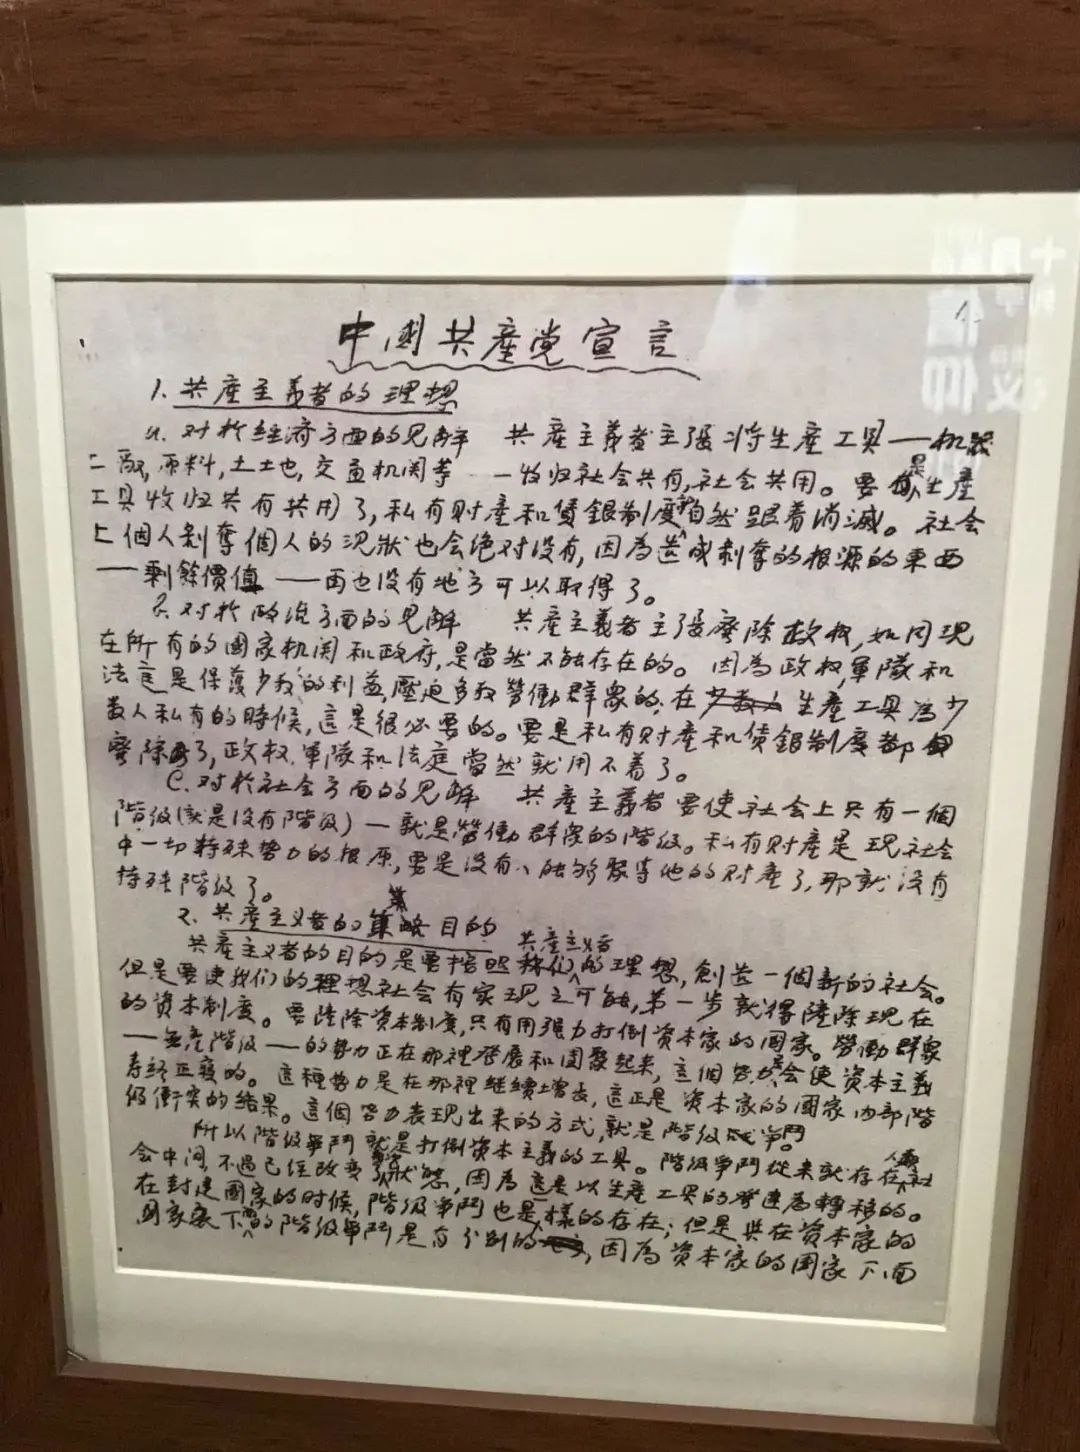 中國共產党宣言
1. 共產主義者的理想
a. 对於經济方面的見解 共產主義者主張將生產工具——机器
工廠,原料,土地,交通机関等——收归社会共有,社会共用。要是生產
工具收归共有共用了,私有財產和賃銀制度就自然跟着消滅。社会
上個人剝奪個人的況狀也会絶对没有,因為造成剝奪的根源的東西
——剩餘價值——再也没有地方可以取得了。
B. 对於政治方面的見解 共產主義者主張廢除政权,如同現
在所有的國家机関和政府,是當然不能存在的。因為政权,軍隊和
法庭是保護少数的利益,壓迫多数勞働群衆的;在生產工具為少
数人私有的時候,這是很必要的。要是私有財產和賃銀制度都
廢除了,政权、軍隊和法庭當然就用不着了。
C. 对於社会方面的見解 共產主義者要使社会上只有一個
階級(就是没有階級)—就是勞働群衆的階級。私有財產是現社会
中一切特殊势力的根原,要是没有人能够聚集他的財產了,那就没有
特殊階級了。
2. 共產主义者的目的
共產主义者的目的是要按照共產主义者的理想,創造一個新的社会。
但是要使我们的理想社会有实現之可能,第一步就得鏟除現在
的資本制度。要鏟除資本制度,只有用强力打倒資本家的國家。勞働群衆
——無產階級——的势力正在那裡發展和团聚起來,這個势力是会使資本主義
寿終正寢的。這種势力是在那裡継續增長,這正是資本家的國家内部階
級衝突的結果。這個势力表現出來的方式,就是階級爭鬥。
所以階級爭鬥就是打倒資本主義的工具。階級爭鬥從來就存在人類社
会中间,不過已經改变状態,因為這是以生產工具的發達為轉移的。
在封建國家的时候,階級爭鬥也是樣的存在;但是與在資本家的
國家底下的階級爭鬥是有分别的,因為資本家的国家下面